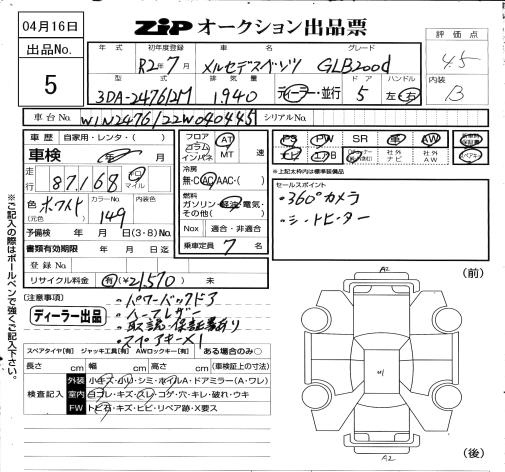 04月16日
出品No.
5
ZIP オークション出品票
評価点
4.5
内装
B
年式 初年度登録 車名 グレード
R2年7月 メルセデスベンツ GLB200d
型式 排気量 ドア ハンドル
3DA-247612M 1,940 ディーラー・並行 5 左・右
車台No. W1N2476122W040445 シリアルNo.
車歴 自家用・レンタ・( )
車検 年 月
走行 87,168 キロ マイル
色 (元色) ホワイト カラーNo. 149 内装色
予備検 年 月 日(3・8)No.
書類有効期限 年 月 日迄
登録No.
リサイクル料金 有(¥21,570) 未
フロア コラム インパネ AT MT 速
冷房 無・C・AC・AAC・( )
燃料 ガソリン・軽油・電気・その他( )
Nox 適合・非適合
乗車定員 7 名
PS PW SR 革 AW
ナビ エアB 社外ナビ 社外AW
*上記太枠内は標準装備品
セールスポイント
・360°カメラ
・シートヒーター
(注意事項)
ディーラー出品
・パワーバックドア
・ハーフレザー
・取説・保証書有り
・スペアキー×1
スペアタイヤ[有] ジャッキ工具[有] AWロックキー[有] ある場合のみ○
長さ cm 幅 cm 高さ cm (車検証上の寸法)
検査記入
外装 小キズ・小リ・シミ・ホイルA・ドアミラー(A・ワレ)
室内 白ブレ・キズ・スレ・コゲ・穴・キレ・破れ・ウキ
FW トビ石・キズ・ヒビ・リペア跡・X要ス
※ご記入の際はボールペンで強くご記入下さい。
(前)
A2
A2
(後)